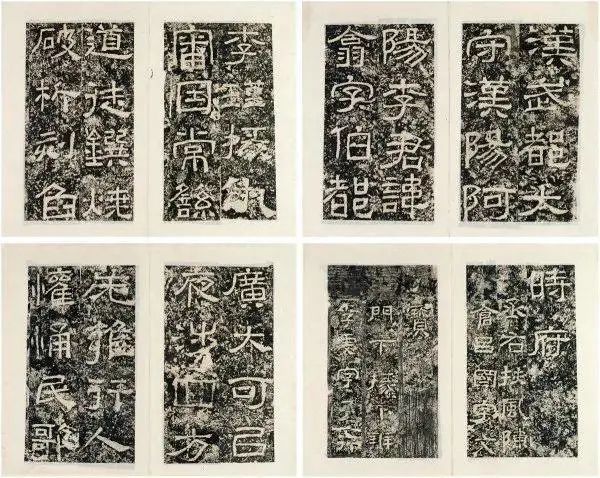 李瑾掾仇
審因常繇
道徒鐉燒
破析刻臽
漢武都太
守漢陽阿
陽李君諱
翕字伯都
廣大可㠯
夜涉四方
无雍行人
懽悀民歌
時府
丞右扶風陳
倉吕國字文
寶
門下掾下辨
李虔字子